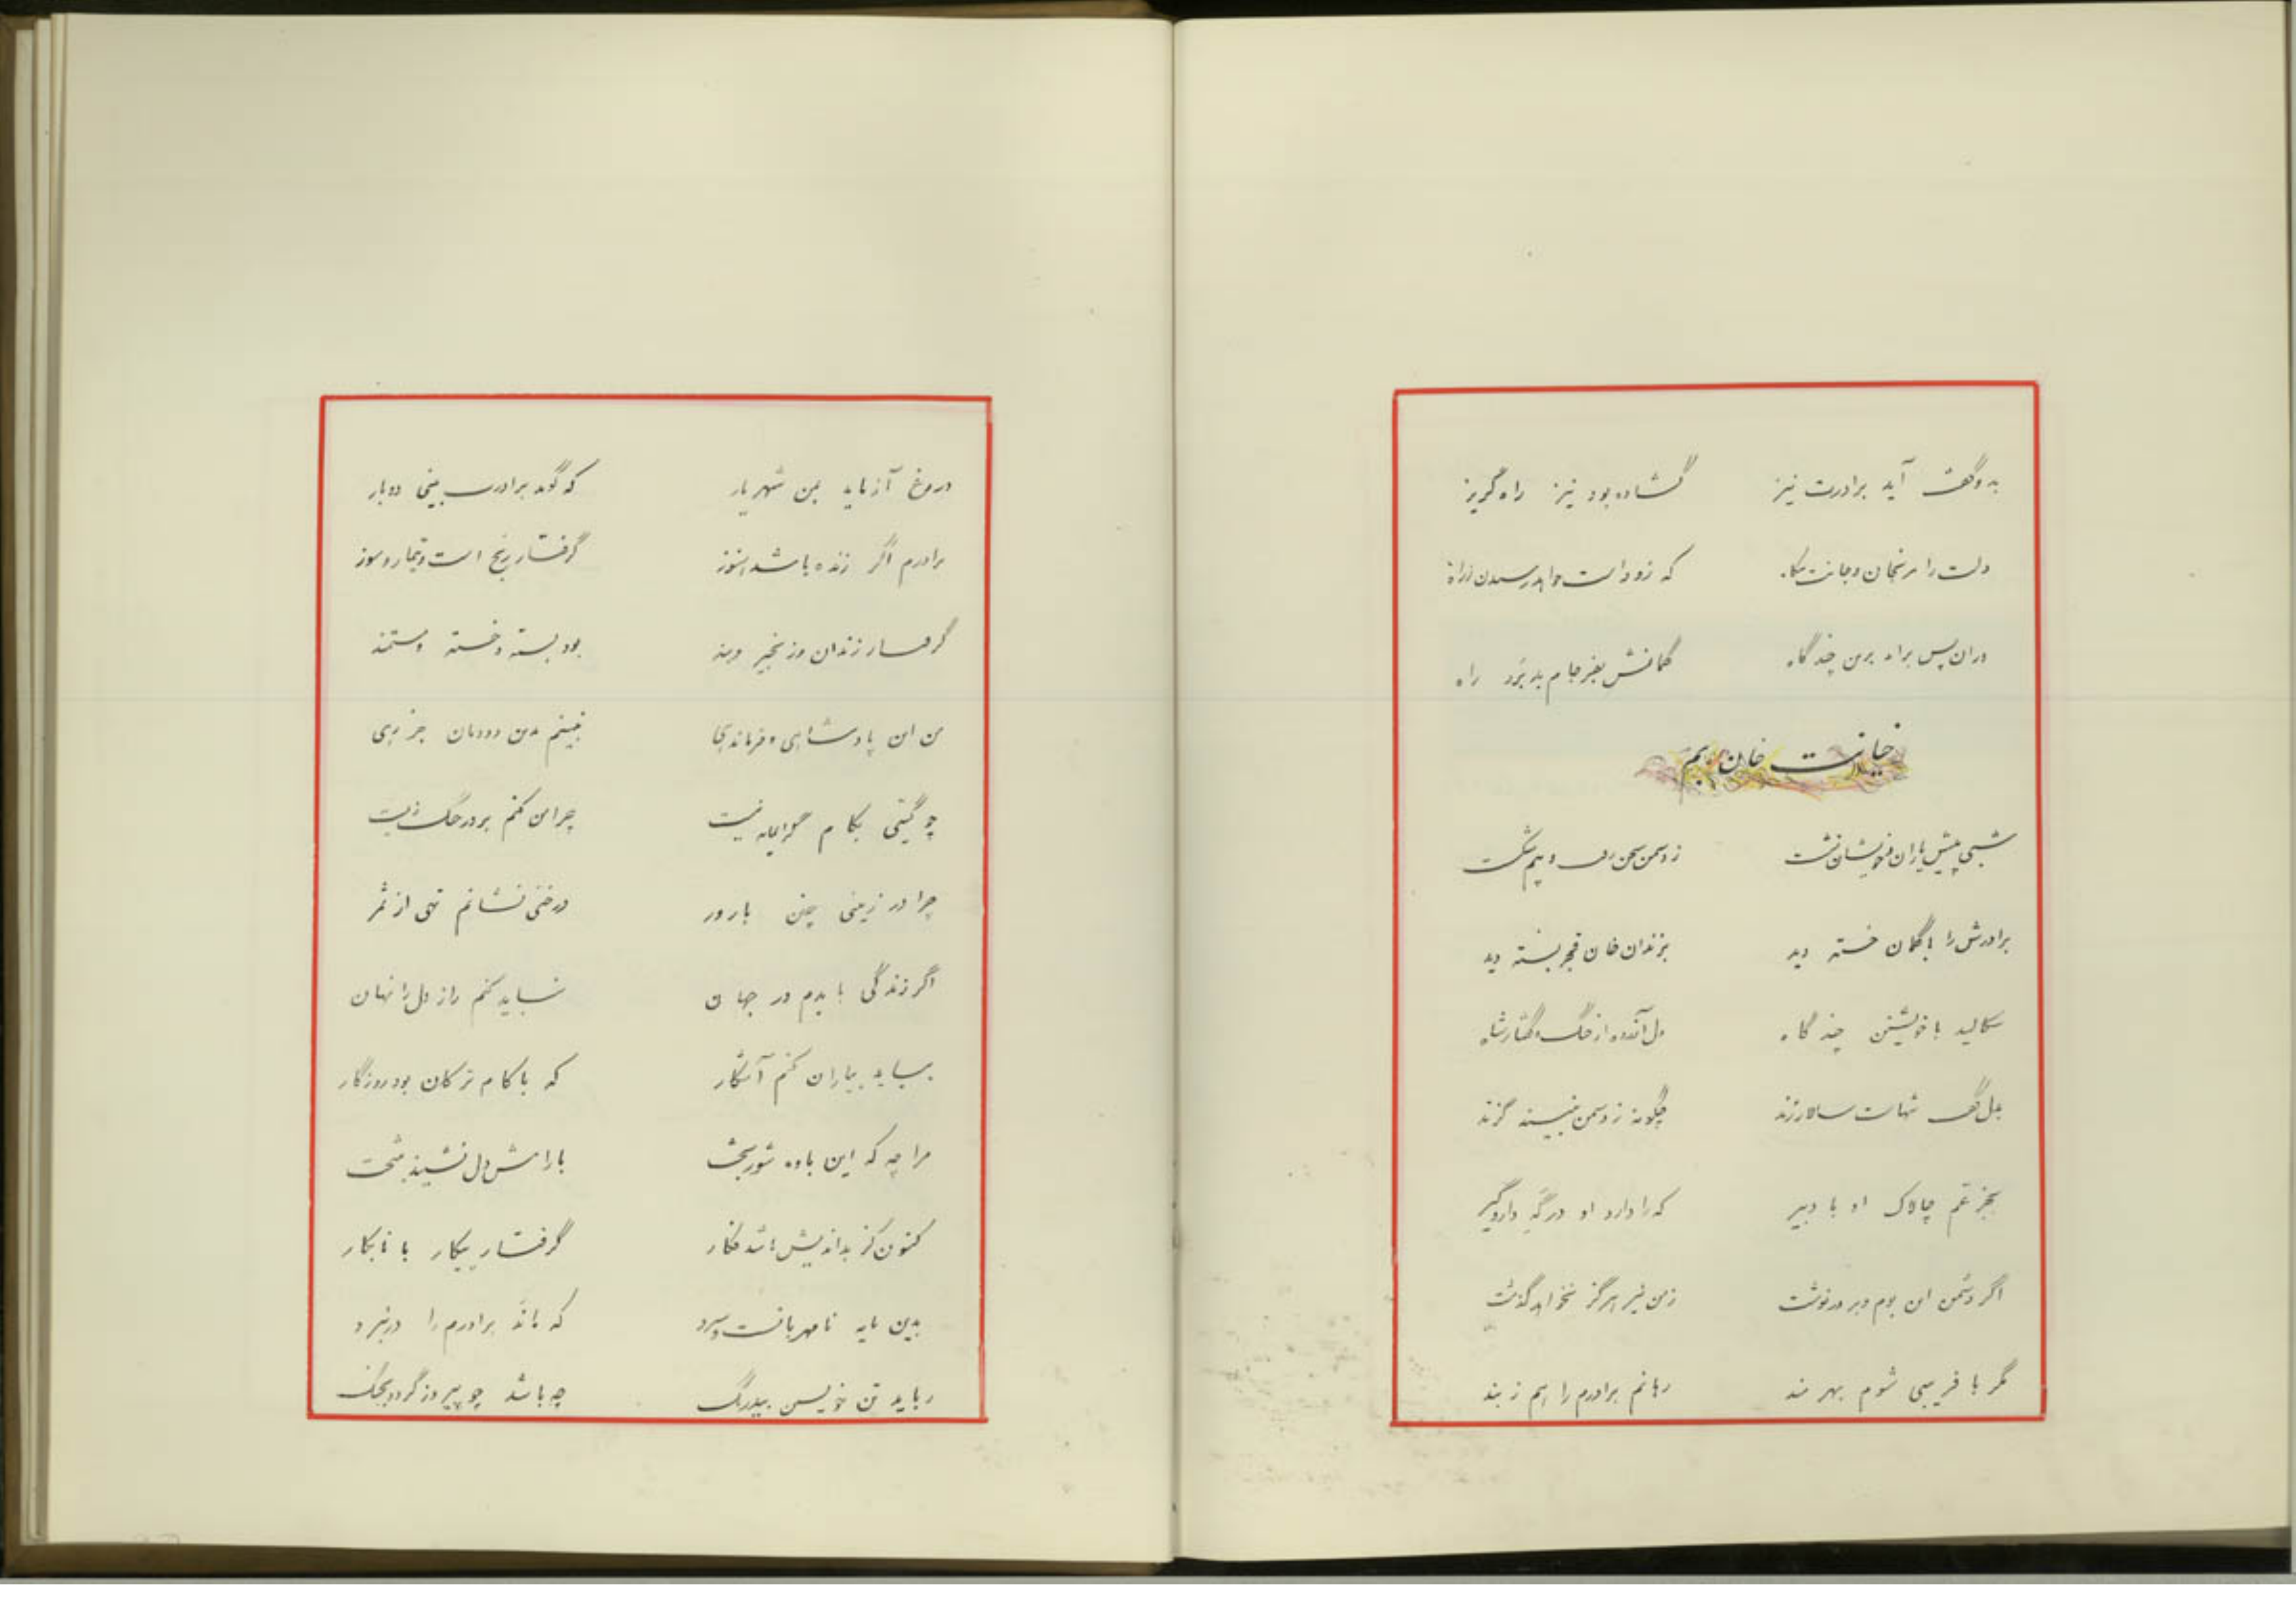 بدو گفت آید برادرت نیز گشاده بود نیز راه گریز
دلت را مرنجان و جانت مکاه که زود است خواهد رسیدن ز راه
در آن پس براه برین چند گاه گمانش بفرجام بد برد راه
خیانت خان بم
شبی پیش یاران و خویشان نشست ز دشمن سخن رفت و بیم شکست
برادرش را با گمان خسته دید بزندان خان قجر بسته دید
سگالید با خویشتن چند گاه دل آزرده از جنگ و گفتار شاه
بدل گفت تنهاست سالار زند چگونه ز دشمن نبیند گزند
بجز عم چالاک او با دبیر که را دارد او در گه دار و گیر
اگر دشمن این بوم و بر در نوشت ز من نیز هرگز نخواهد گذشت
مگر با فریبی شوم بهره مند رهانم برادرم را هم ز بند
دروغ آزماید بمن شهریار که گوید برادرت بینی دوبار
برادرم اگر زنده باشد هنوز گرفتار رنج است و تیمار و سوز
گرفتار زندان و زنجیر و بند بود بسته و خسته و مستمند
من این پادشاهی و فرماندهی نبینم بدین دودمان جز بهی
چو گیتی بکام گرانمایه نیست چرا من کنم بر در جنگ زیست
چرا در زمینی چنین بارور درختی نشانم تهی از ثمر
اگر زندگی بایدم در جهان نباید کنم راز دل را نهان
بباید بیاران کنم آشکار که با کام ترکان بود روزگار
مرا چه که این باوه شوربخت بارامش دل نشیند بتخت
کنون کز بداندیش باشد فکار گرفتار پیکار با نابکار
بدین مایه نامهربانست و سرد که ماند برادرم را در نبرد
رباید تن خویش بیدرنگ چه باشد چو پیروز گردد بجنگ